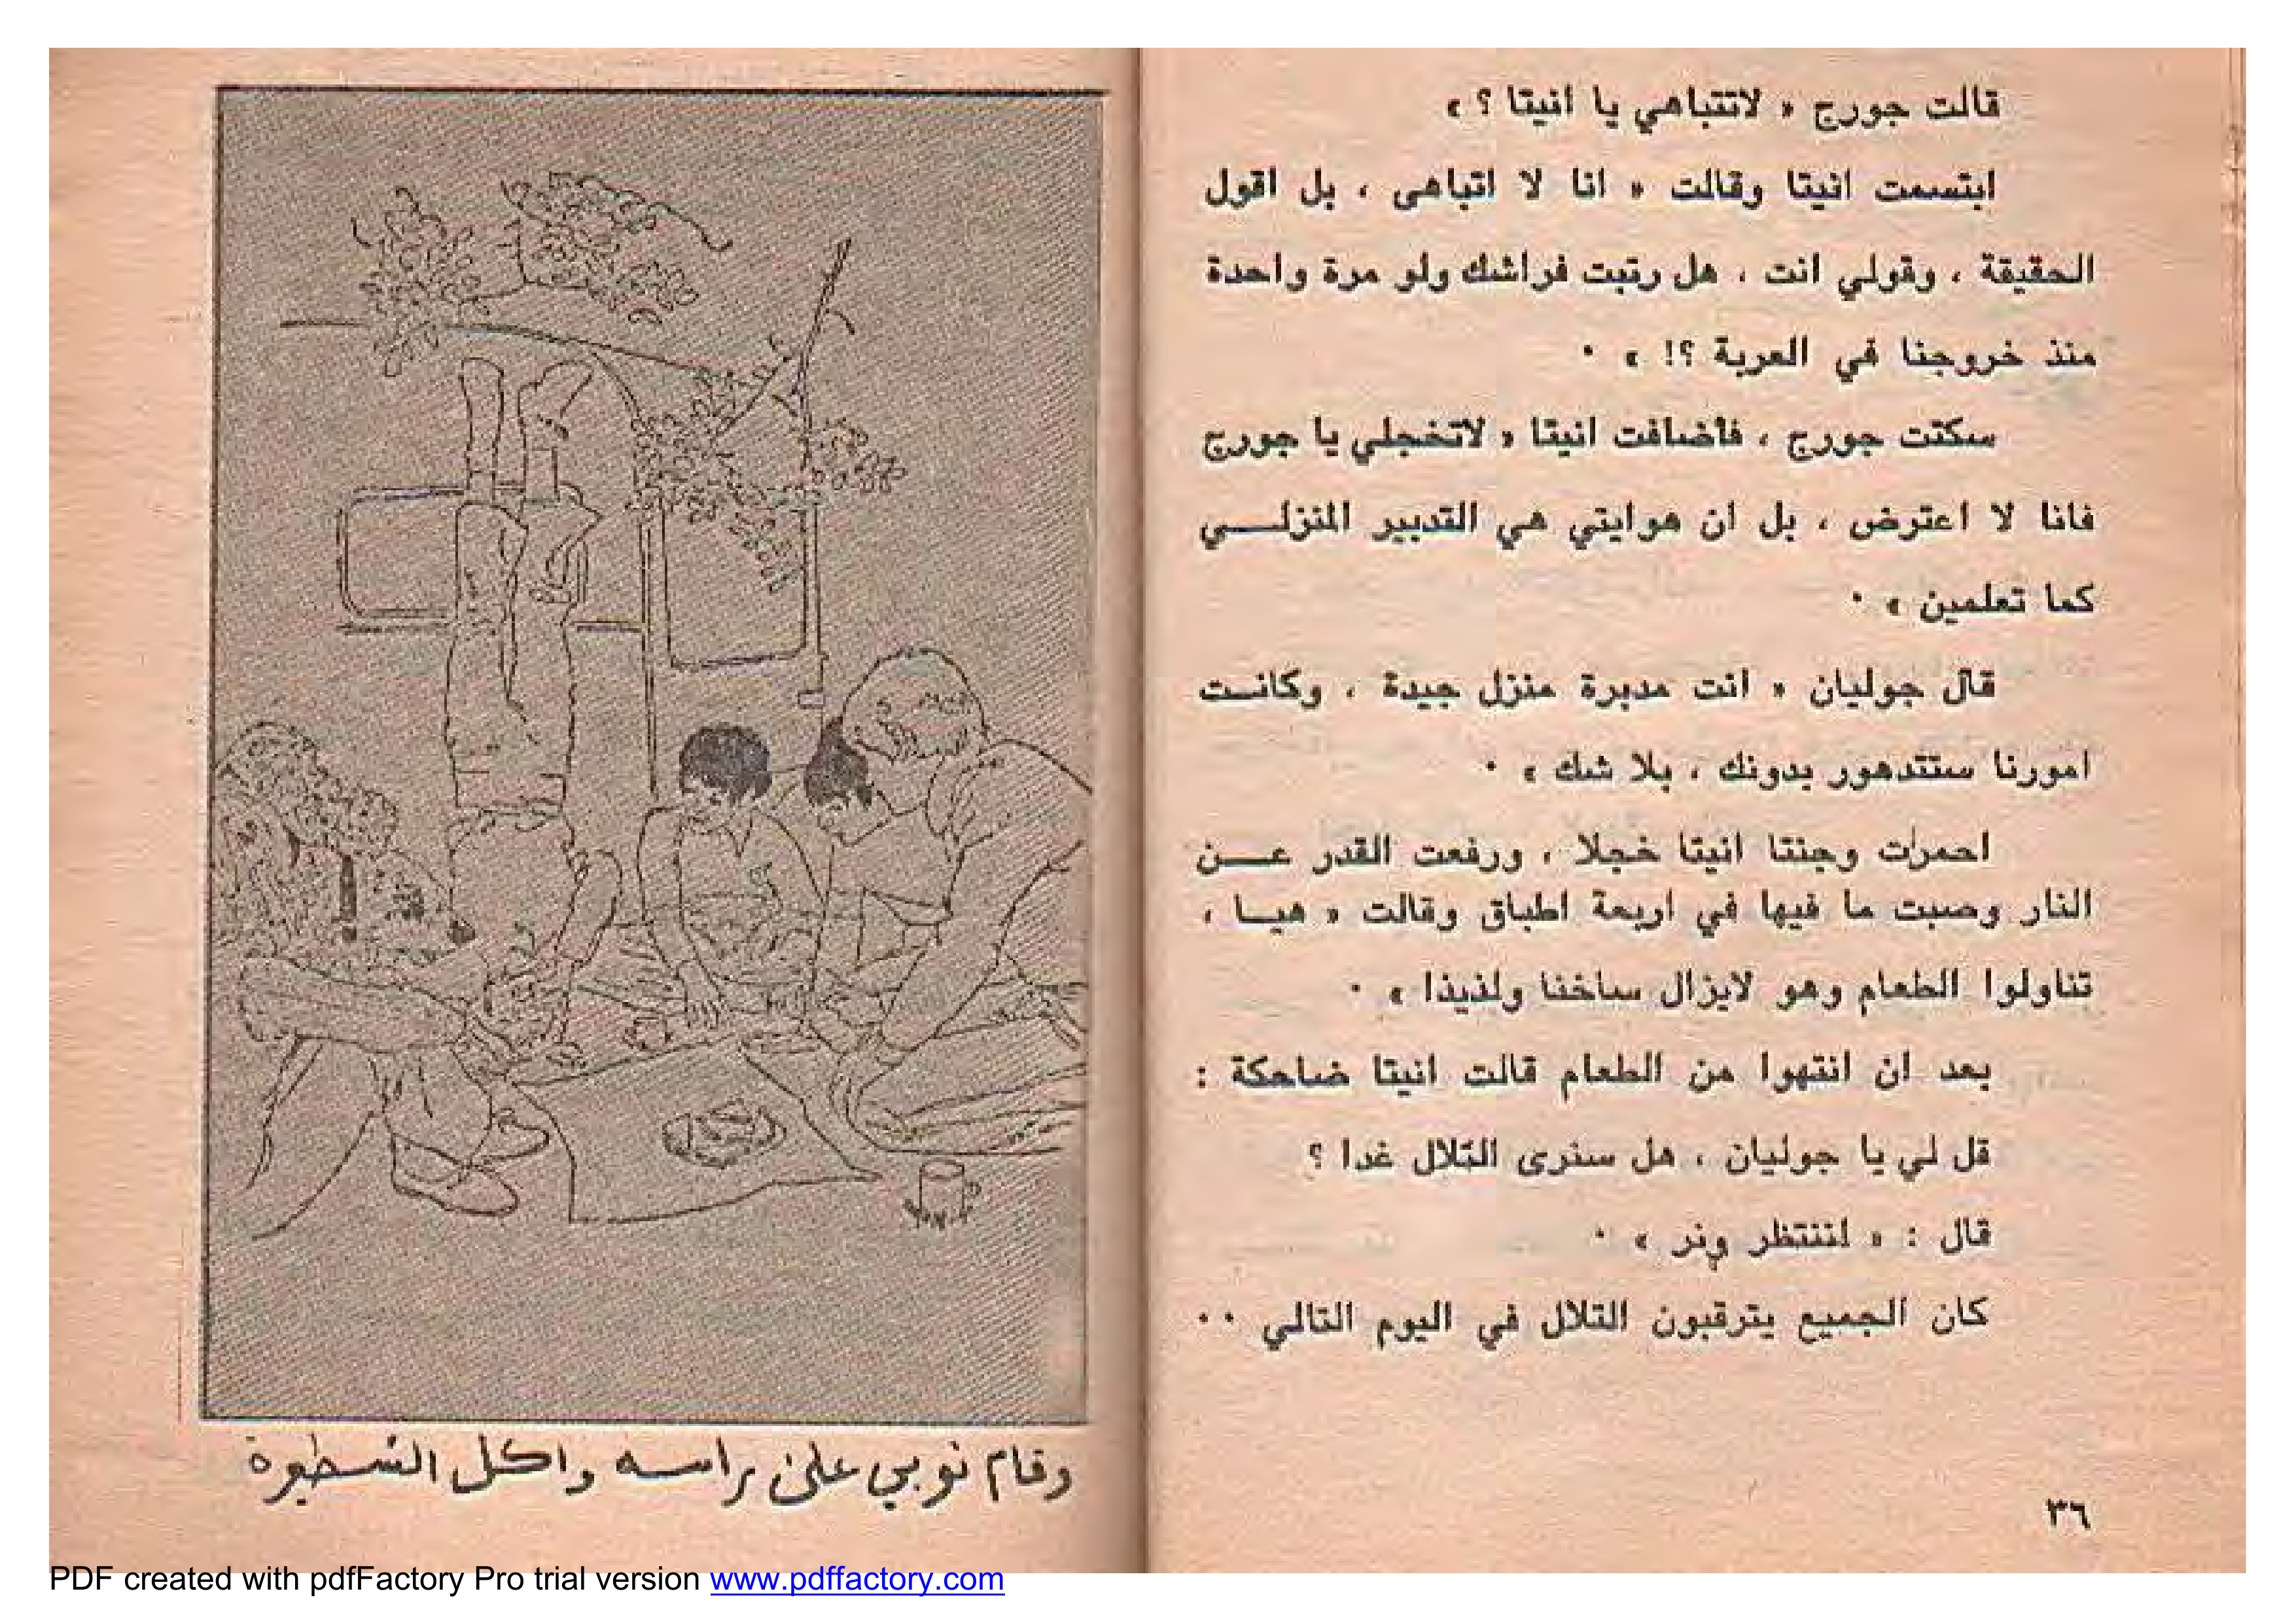 قالت جورج « لاتتباهي يا انيتا ؟ »
ابتسمت انيتا وقالت « انا لا اتباهى ، بل اقول
الحقيقة ، وقولي انت ، هل رتبت فراشك ولو مرة واحدة
منذ خروجنا في العربة ؟! » ٠
سكتت جورج ، فأضافت انيتا « لاتخجلي يا جورج
فانا لا اعترض ، بل ان هوايتي هي التدبير المنزلـــي
كما تعلمين » ٠
قال جوليان « انت مدبرة منزل جيدة ، وكانـت
امورنا ستتدهور بدونك ، بلا شك » ٠
احمرت وجنتا انيتا خجلا ، ورفعت القدر عـــن
النار وصبت ما فيها في اربعة اطباق وقالت « هيـا ،
تناولوا الطعام وهو لايزال ساخنا ولذيذا » ٠
بعد ان انتهوا من الطعام قالت انيتا ضاحكة :
قل لي يا جوليان ، هل سنرى التلال غدا ؟
قال : « لننتظر ونر » ٠
كان الجميع يترقبون التلال في اليوم التالي ٠٠
٣٦
وقام نوبي على راسه واكل الشطيرة
PDF created with pdfFactory Pro trial version www.pdffactory.com